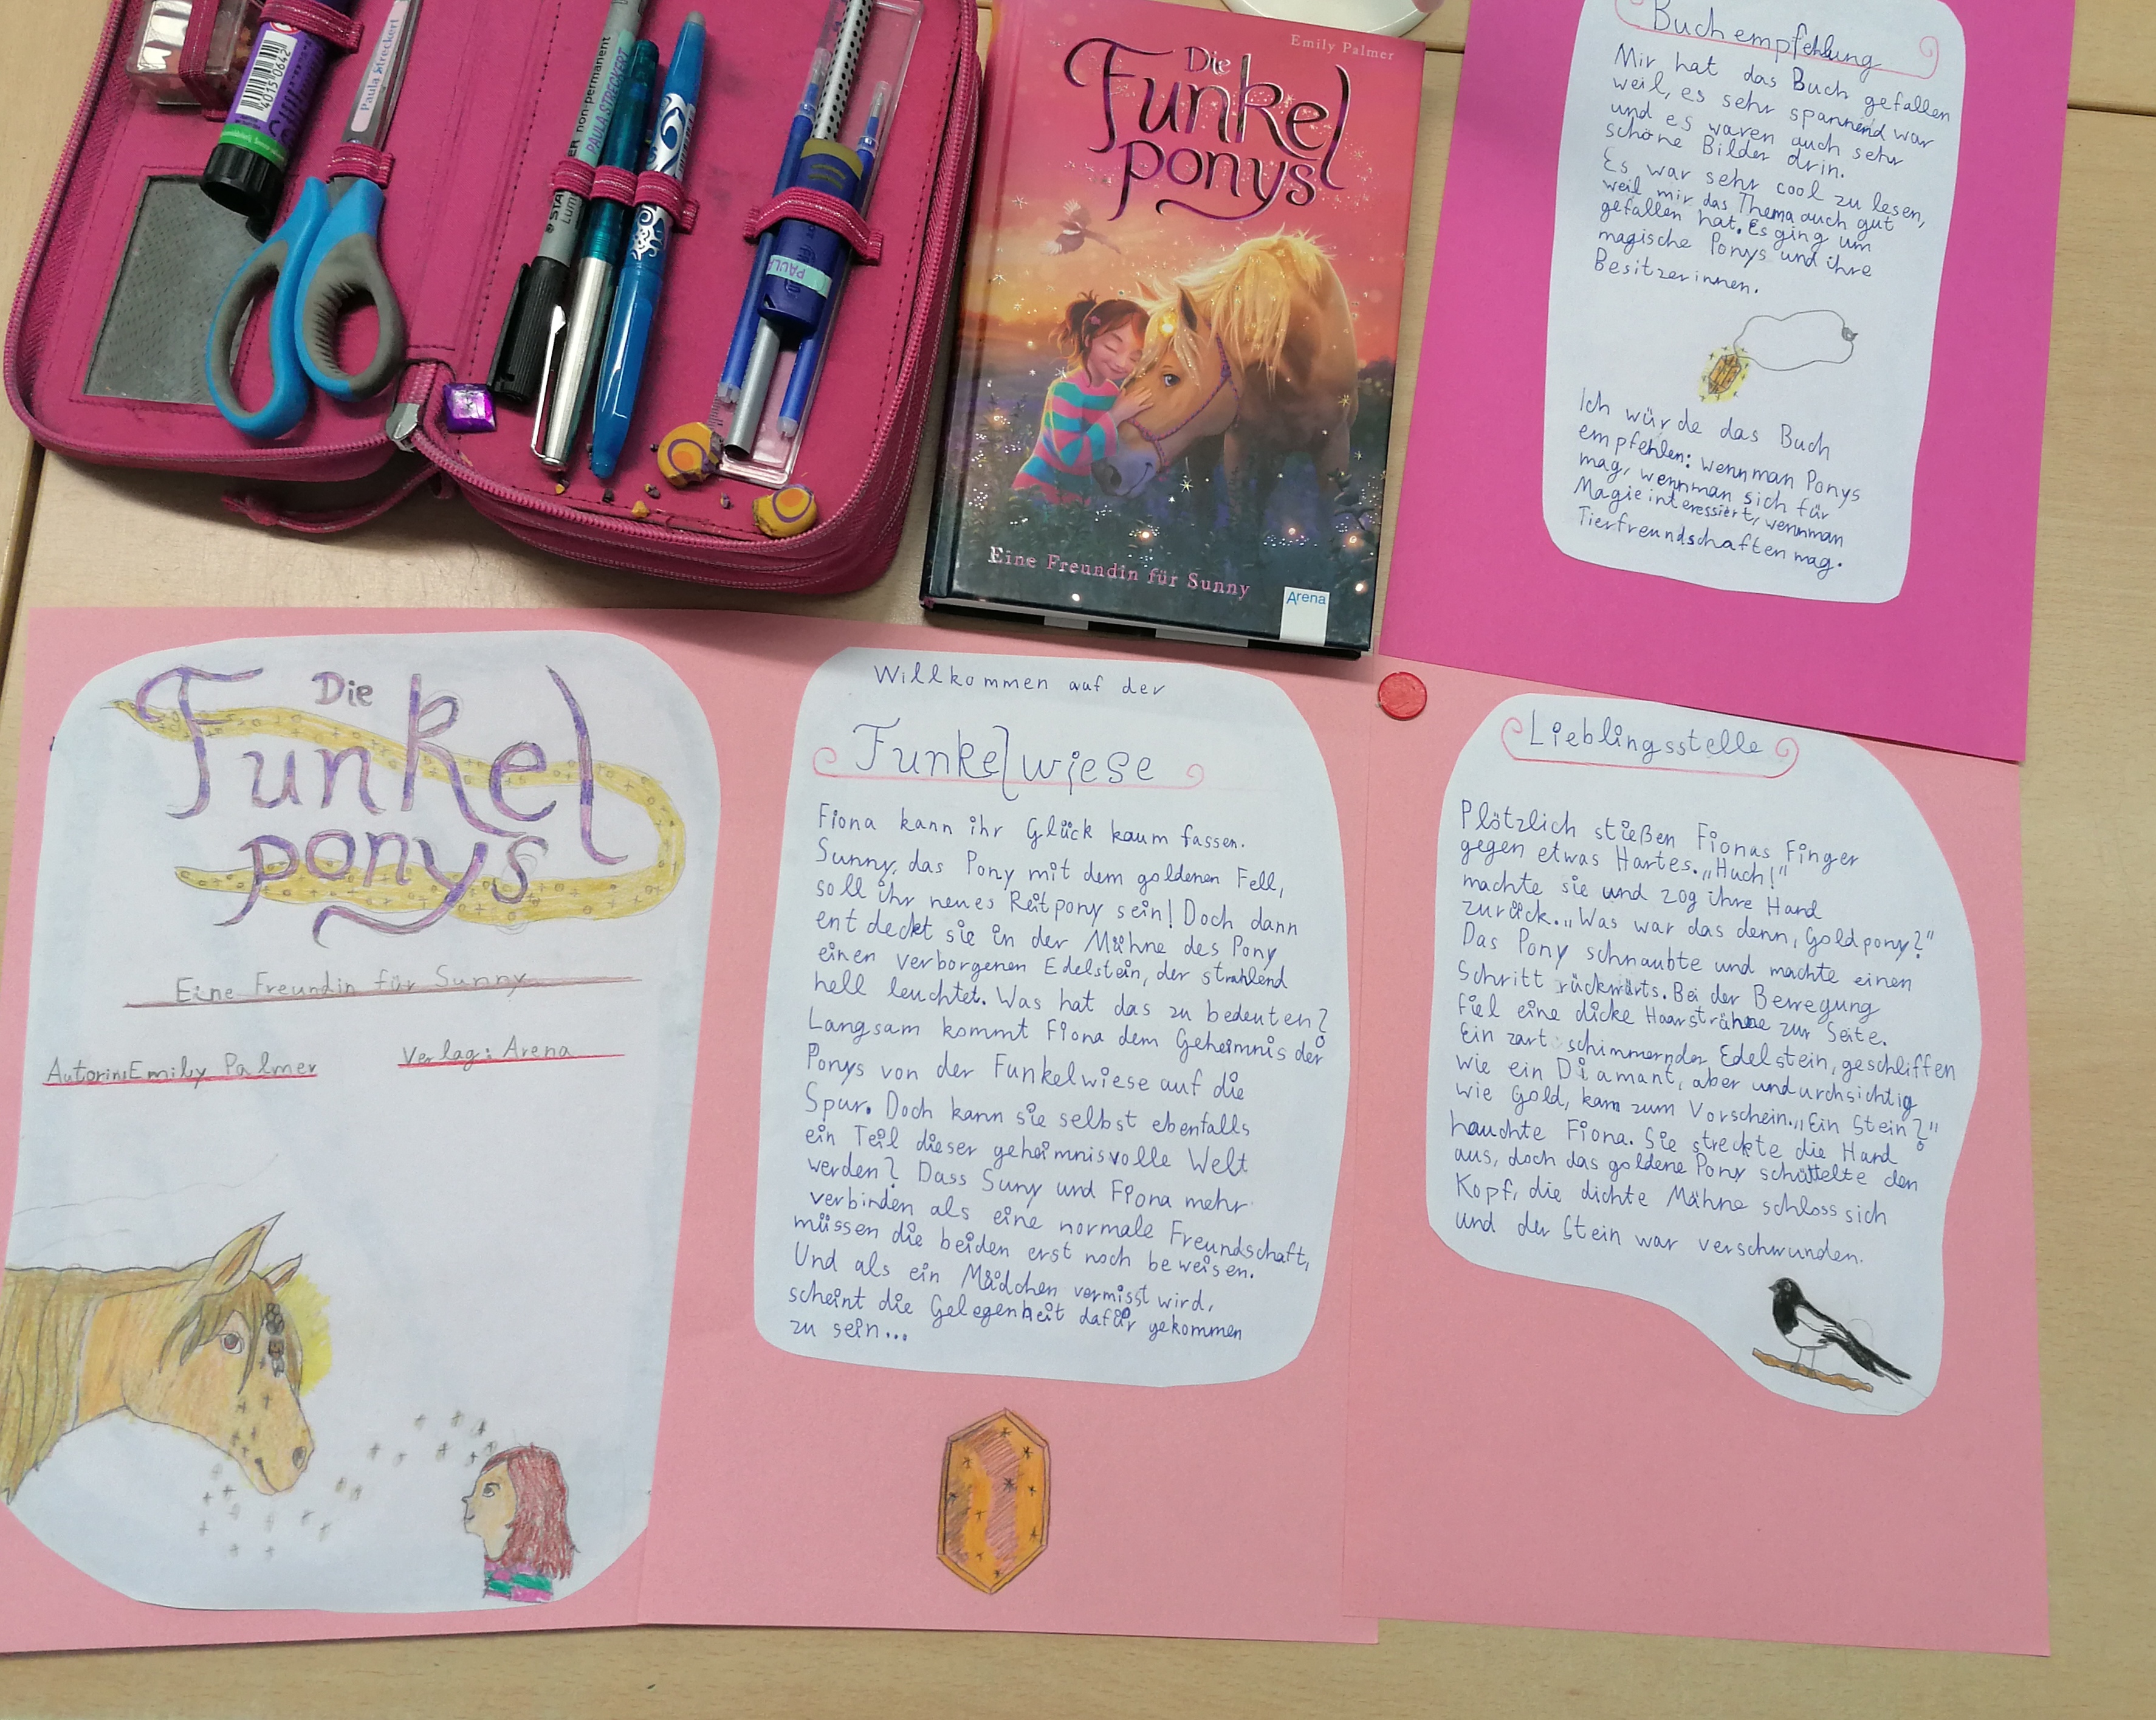 40150642
Paula Streckert
non-permanent
PAULA STRECKERT
STA
Lum
PAULA
Emily Palmer
Die
Funkel
ponys
Eine Freundin für Sunny
Arena
Buchempfehlung
Mir hat das Buch gefallen
weil, es sehr spannend war
und es waren auch sehr
schöne Bilder drin.
Es war sehr cool zu lesen,
weil mir das Thema auch gut
gefallen hat. Es ging um
magische Ponys und ihre
Besitzerinnen.
Ich würde das Buch
empfehlen: wenn man Ponys
mag, wenn man sich für
Magie interessiert, wenn man
Tierfreundschaften mag.
Die
Funkel
ponys
Eine Freundin für Sunny
Autorin: Emily Palmer
Verlag: Arena
Willkommen auf der
Funkelwiese
Fiona kann ihr Glück kaum fassen.
Sunny, das Pony mit dem goldenen Fell,
soll ihr neues Reitpony sein! Doch dann
entdeckt sie in der Mähne des Pony
einen verborgenen Edelstein, der strahlend
hell leuchtet. Was hat das zu bedeuten?
Langsam kommt Fiona dem Geheimnis der
Ponys von der Funkelwiese auf die
Spur. Doch kann sie selbst ebenfalls
ein Teil dieser geheimnisvolle Welt
werden? Dass Suny und Fiona mehr
verbinden als eine normale Freundschaft,
müssen die beiden erst noch beweisen.
Und als ein Mädchen vermisst wird,
scheint die Gelegenheit dafür gekommen
zu sein...
Lieblingsstelle
Plötzlich stießen Fionas Finger
gegen etwas Hartes. „Huch!"
machte sie und zog ihre Hand
zurück. „Was war das denn, Goldpony?"
Das Pony schnaubte und machte einen
Schritt rückwärts. Bei der Bewegung
fiel eine dicke Haarsträhne zur Seite.
Ein zart schimmernder Edelstein, geschliffen
wie ein Diamant, aber undurchsichtig
wie Gold, kam zum Vorschein. „Ein Stein?"
hauchte Fiona. Sie streckte die Hand
aus, doch das goldene Pony schüttelte den
Kopf, die dichte Mähne schloss sich
und der Stein war verschwunden.